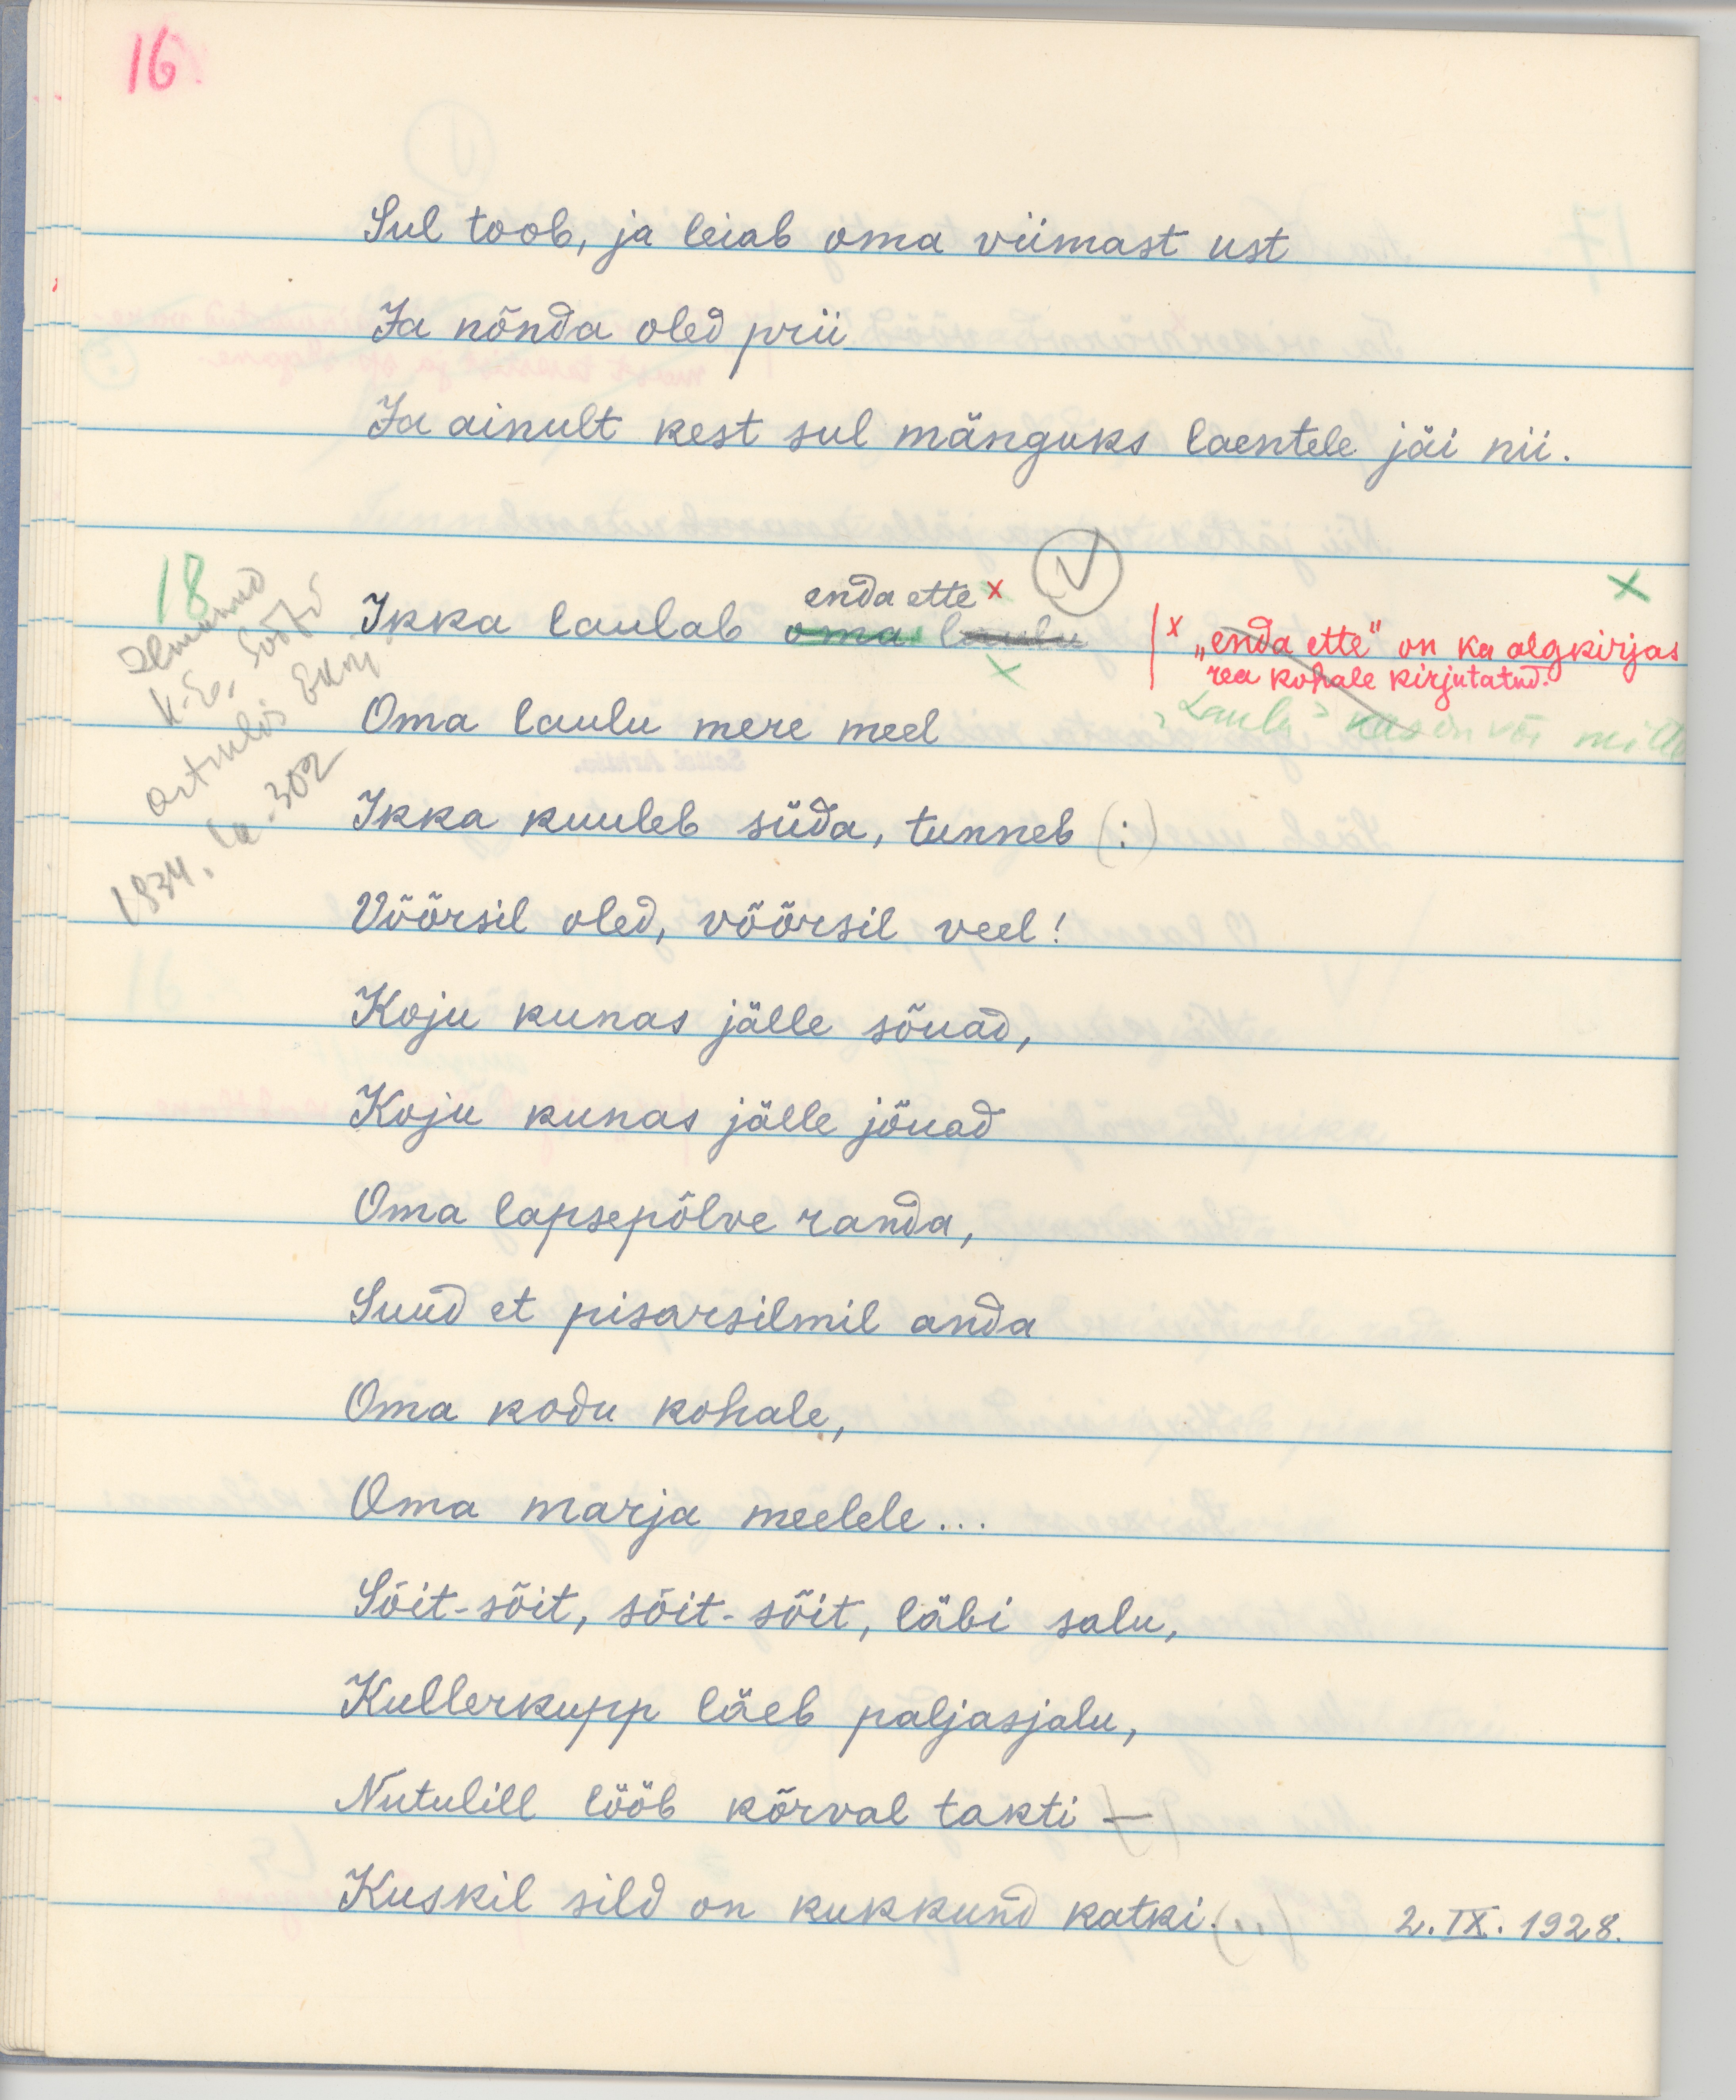 16
Sul toob, ja leiab oma viimast ust
Ja nõnda oled prii
Ja ainult kest sul mänguks laentele jäi nii.
18
Ilmunud
enda ette x
V
x
Ikka laulab oma laulu
x
x „enda ette" on ka algkirjas
rea kohale kirjutatud.
Oma laulu mere meel
„Laulu" või mitte
artiklis
1934. 302
Ikka kuuleb süda, tunneb (:)
Võõrsil oled, võõrsil veel!
Koju kunas jälle sõuad,
Koju kunas jälle jõuad
Oma lapsepõlve randa,
Suud et pisarsilmil anda
Oma kodu kohale,
Oma marja meelele...
Sõit-sõit, sõit-sõit, läbi salu,
Kullerkupp läeb paljasjalu,
Nutulill lööb kõrval takti —
Kuskil sild on kukkund katki.(..) 2. IX. 1928.